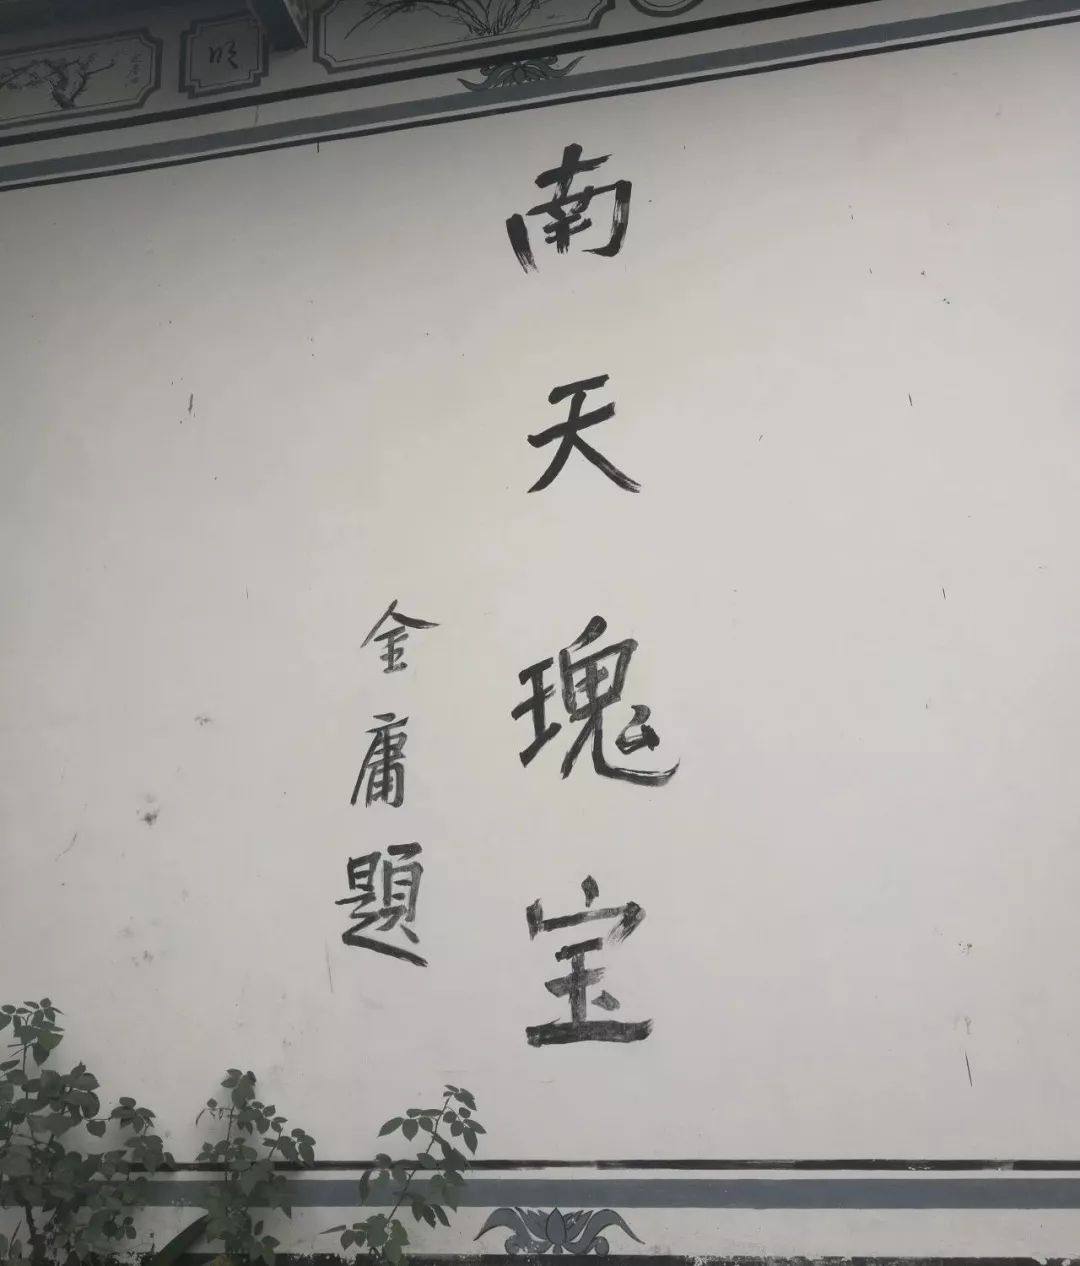 南天瑰宝
金庸題